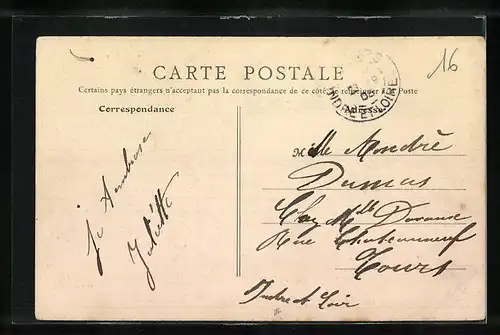 16
CARTE POSTALE
Certains pays étrangers n'acceptant pas la correspondance de ce côté, se renseigner à la Poste
Correspondance
Adresse
INDRE ET LOIRE
Je
Juliette
Mlle Andrée
Dumas
Chez Mlle
Rue Chateauneuf
Tours
Indre et Loir